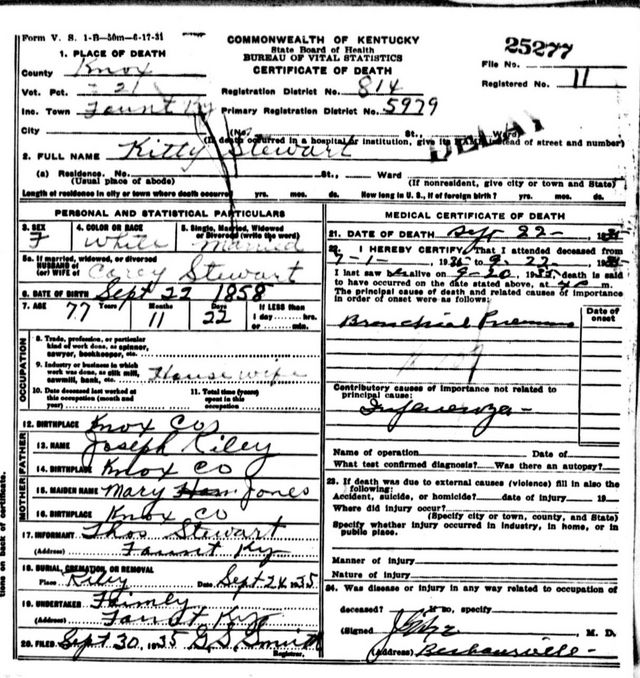 Form V. S. 1-B—50m—6-17-31
COMMONWEALTH OF KENTUCKY
State Board of Health
BUREAU OF VITAL STATISTICS
CERTIFICATE OF DEATH
25277
File No.
Registered No. 11
1. PLACE OF DEATH
County Knox
Vot. Pct. 21
Inc. Town Faunt Ky
Registration District No. 814
Primary Registration District No. 5979
City (No. St., Ward)
(If death occurred in a hospital or institution, give its NAME instead of street and number)
DELAY
2. FULL NAME Kitty Stewart
(a) Residence. No. St., Ward
(Usual place of abode) (If nonresident, give city or town and State)
Length of residence in city or town where death occurred yrs. mos. ds. How long in U. S., if of foreign birth? yrs. mos. ds.
PERSONAL AND STATISTICAL PARTICULARS
3. SEX 4. COLOR OR RACE 5. Single, Married, Widowed
or Divorced (write the word)
F White Married
5a. If married, widowed, or divorced
HUSBAND of
(or) WIFE of Corey Stewart
6. DATE OF BIRTH Sept 22 1858
7. AGE 77 Years 11 Months 22 Days If LESS than
1 day hrs.
or min.
OCCUPATION
8. Trade, profession, or particular
kind of work done, as spinner,
sawyer, bookkeeper, etc.
9. Industry or business in which
work was done, as silk mill,
sawmill, bank, etc. House wife
10. Date deceased last worked at
this occupation (month and
year)
11. Total time (years)
spent in this
occupation
12. BIRTHPLACE Knox Co
FATHER
13. NAME Joseph Riley
14. BIRTHPLACE Knox Co
MOTHER
15. MAIDEN NAME Mary Jones
16. BIRTHPLACE Knox Co
17. INFORMANT Thos Stewart
(Address) Faunt Ky
18. BURIAL, CREMATION, OR REMOVAL
Place Riley Date Sept 24 1935
19. UNDERTAKER Faimly
(Address) Faunt Ky
20. FILED Sept 30, 1935 G. S. Smith
Registrar.
MEDICAL CERTIFICATE OF DEATH
21. DATE OF DEATH Sept 22- 1935
22. I HEREBY CERTIFY, That I attended deceased from
7-1- 1935 to 9-22- 1935
I last saw h alive on 9-20 1935, death is said
to have occurred on the date stated above, at m.
The principal cause of death and related causes of importance
in order of onset were as follows:
Date of
onset
Bronchial Pneumonia
Contributory causes of importance not related to
principal cause:
Influenza
Name of operation Date of
What test confirmed diagnosis? Was there an autopsy?
23. If death was due to external causes (violence) fill in also the
following:
Accident, suicide, or homicide? date of injury 19
Where did injury occur?
(Specify city or town, county, and State)
Specify whether injury occurred in industry, in home, or in
public place.
Manner of injury
Nature of injury
24. Was disease or injury in any way related to occupation of
deceased? If so, specify
(Signed) M. D.
(Address) Barbourville
tions on back of certificate.